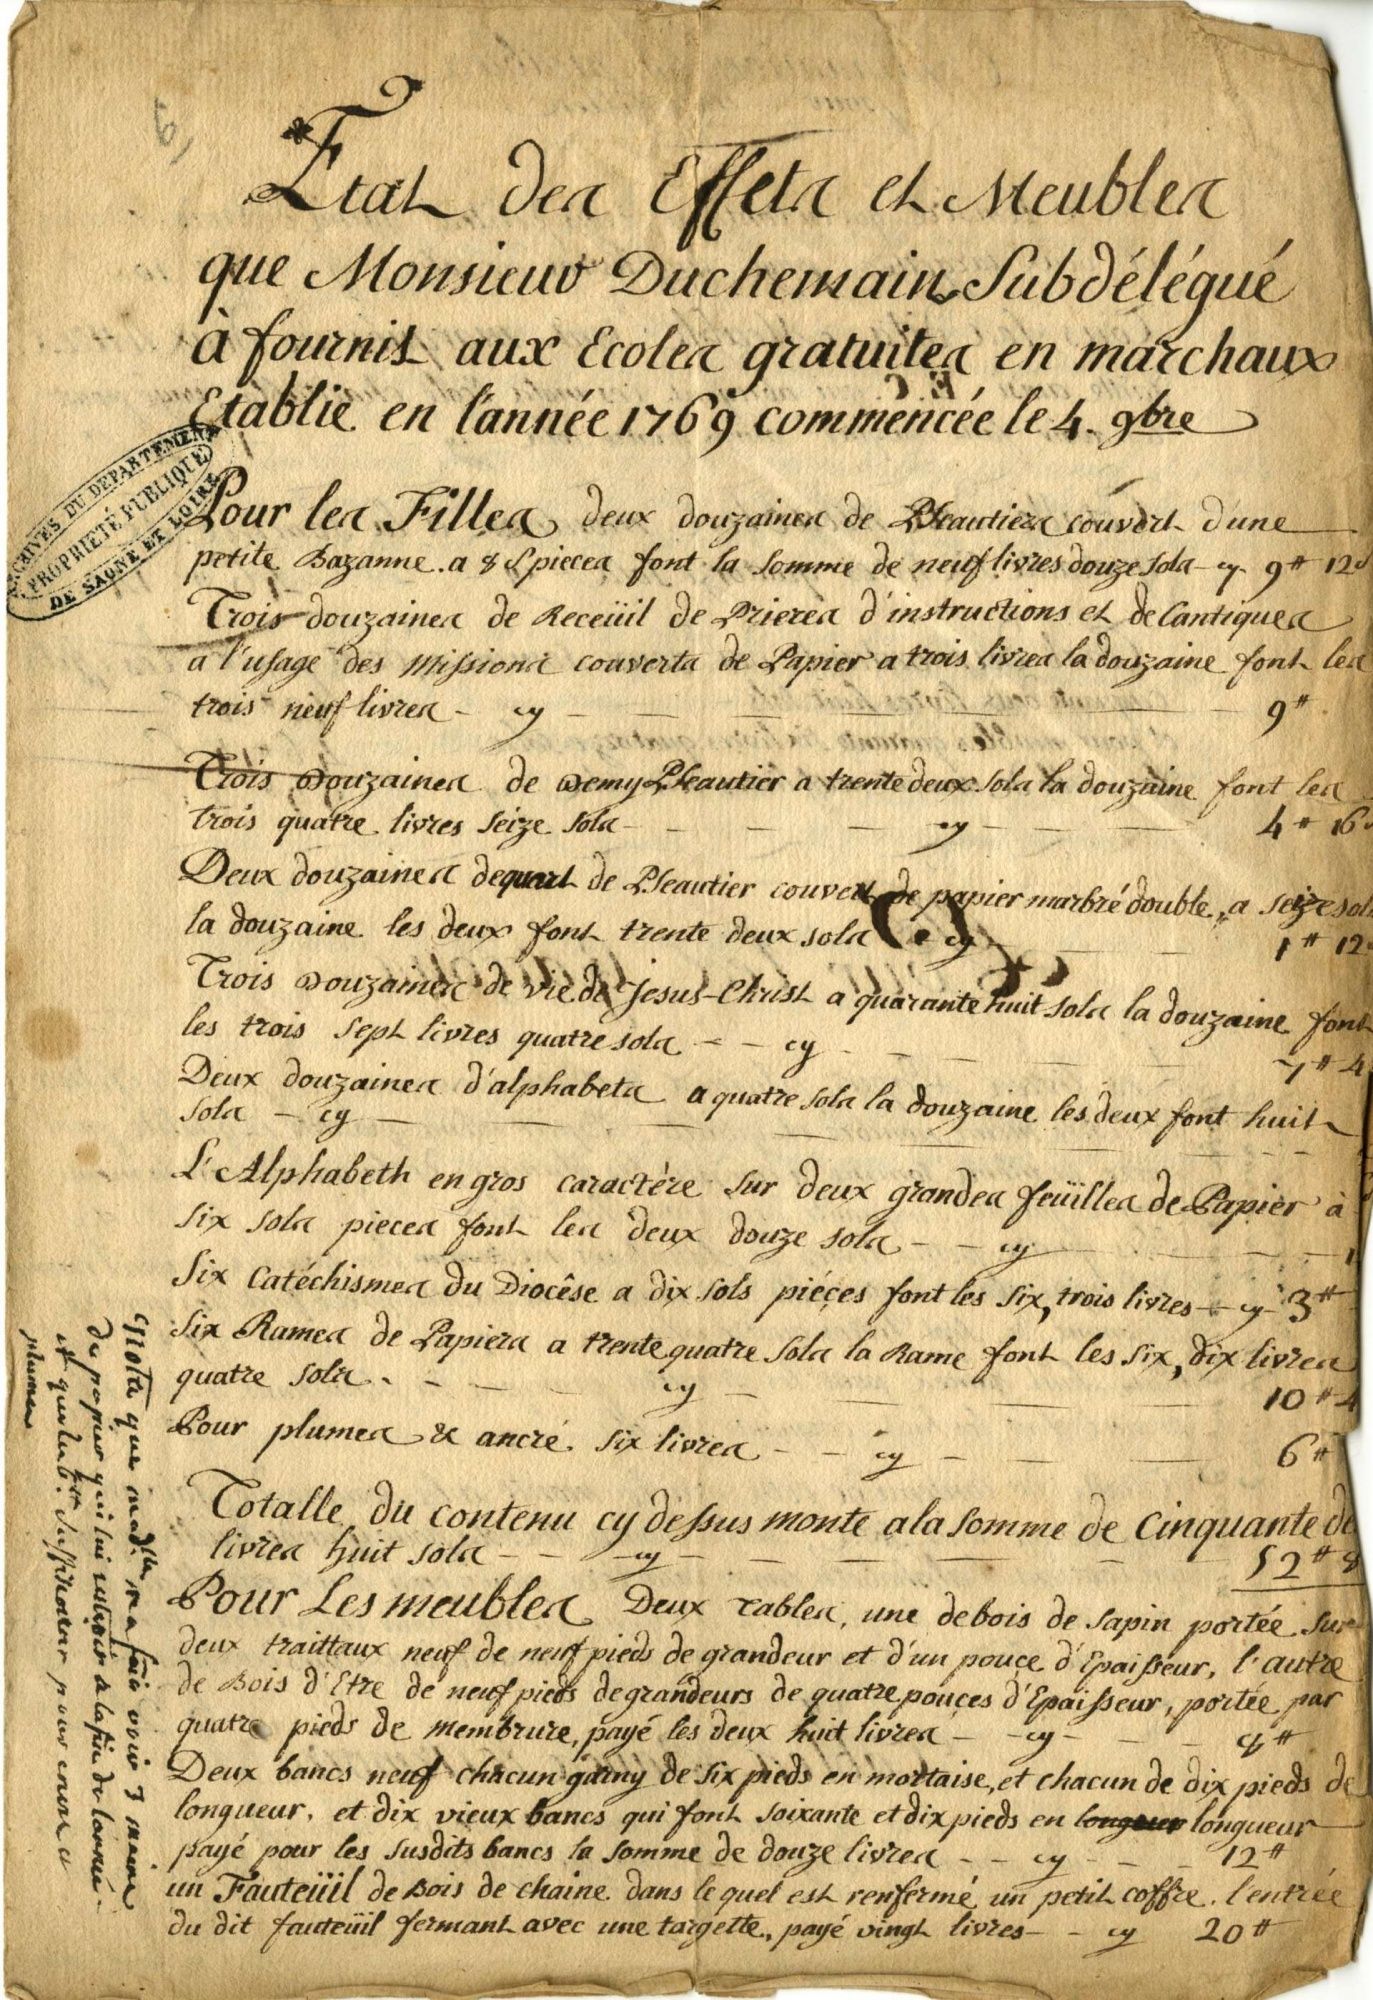 Etat des Effets et Meubles
que Monsieur Duchemain Subdélégué
à fournit aux Ecoles gratuites en marchaux
Etablie en l'année 1769 commencée le 4. 9bre
ARCHIVES DU DEPARTEMENT
PROPRIETÉ PUBLIQUE
DE SAONE ET LOIRE
Pour les Filles, deux douzaines de Pseautiers couvert d'une
petite Bazanne. a 8 s pieces font la somme de neuf livres douze sols - cy - 9# 12s
Trois douzaines de Receüil de Prieres d'instructions et de Cantiques
a l'usage des Missions couverts de Papier a trois livres la douzaine font les
trois neuf livres - cy - 9#
Trois Douzaines de Demy Pseautier a trente deux sols la douzaine font les
trois quatre livres seize sols - cy - 4# 16s
Deux douzaines de quart de Pseautier couvert de papier marbré double, a seize sols
la douzaine les deux font trente deux sols cy - 1# 12s
Trois Douzaines de vie de Jesus-Christ a quarante huit sols la douzaine font
les trois sept livres quatre sols - - cy - 7# 4
Deux douzaines d'alphabets a quatre sols la douzaine les deux font huit
sols - cy -
L'Alphabeth en gros caractére sur deux grandes feüilles de Papier à
six sols pieces font les deux douze sols - - cy
Six Catéchismes du Diocêse a dix sols piéces font les six, trois livres - cy - 3#
Six Rames de Papiers a trente quatre sols la Rame font les six, dix livres
quatre sols - cy - 10# 4
Pour plumes & ancré. six livres - - cy - 6#
Totalle du contenu cy dessus monte a la somme de Cinquante de
livres huit sols - - cy - 52# 8
Pour Les meubles Deux tables, une de bois de sapin portée sur
deux traittaux neuf de neuf pieds de grandeur et d'un pouce d'Epaisseur, l'autre
de Bois d'Etre de neuf pieds de grandeurs de quatre pouces d'Epaisseur, portée par
quatre pieds de membrure, payé les deux huit livres - cy - 8#
Deux bancs neuf chacun garny de six pieds en mortaise, et chacun de dix pieds de
longueur, et dix vieux bancs qui font soixante et dix pieds en longueur longueur
payé pour les susdits bancs la somme de douze livres - - cy - 12#
un Fauteüil de Bois de chaine dans lequel est renfermé un petit coffre, l'entrée
du dit fauteüil fermant avec une targette, payé vingt livres - - cy 20#
Nota que madlle m'a fait voir 3 mains
du papier qui lui restoit à la fin de l'année
et quelles suffiroient pour encre et
plumes